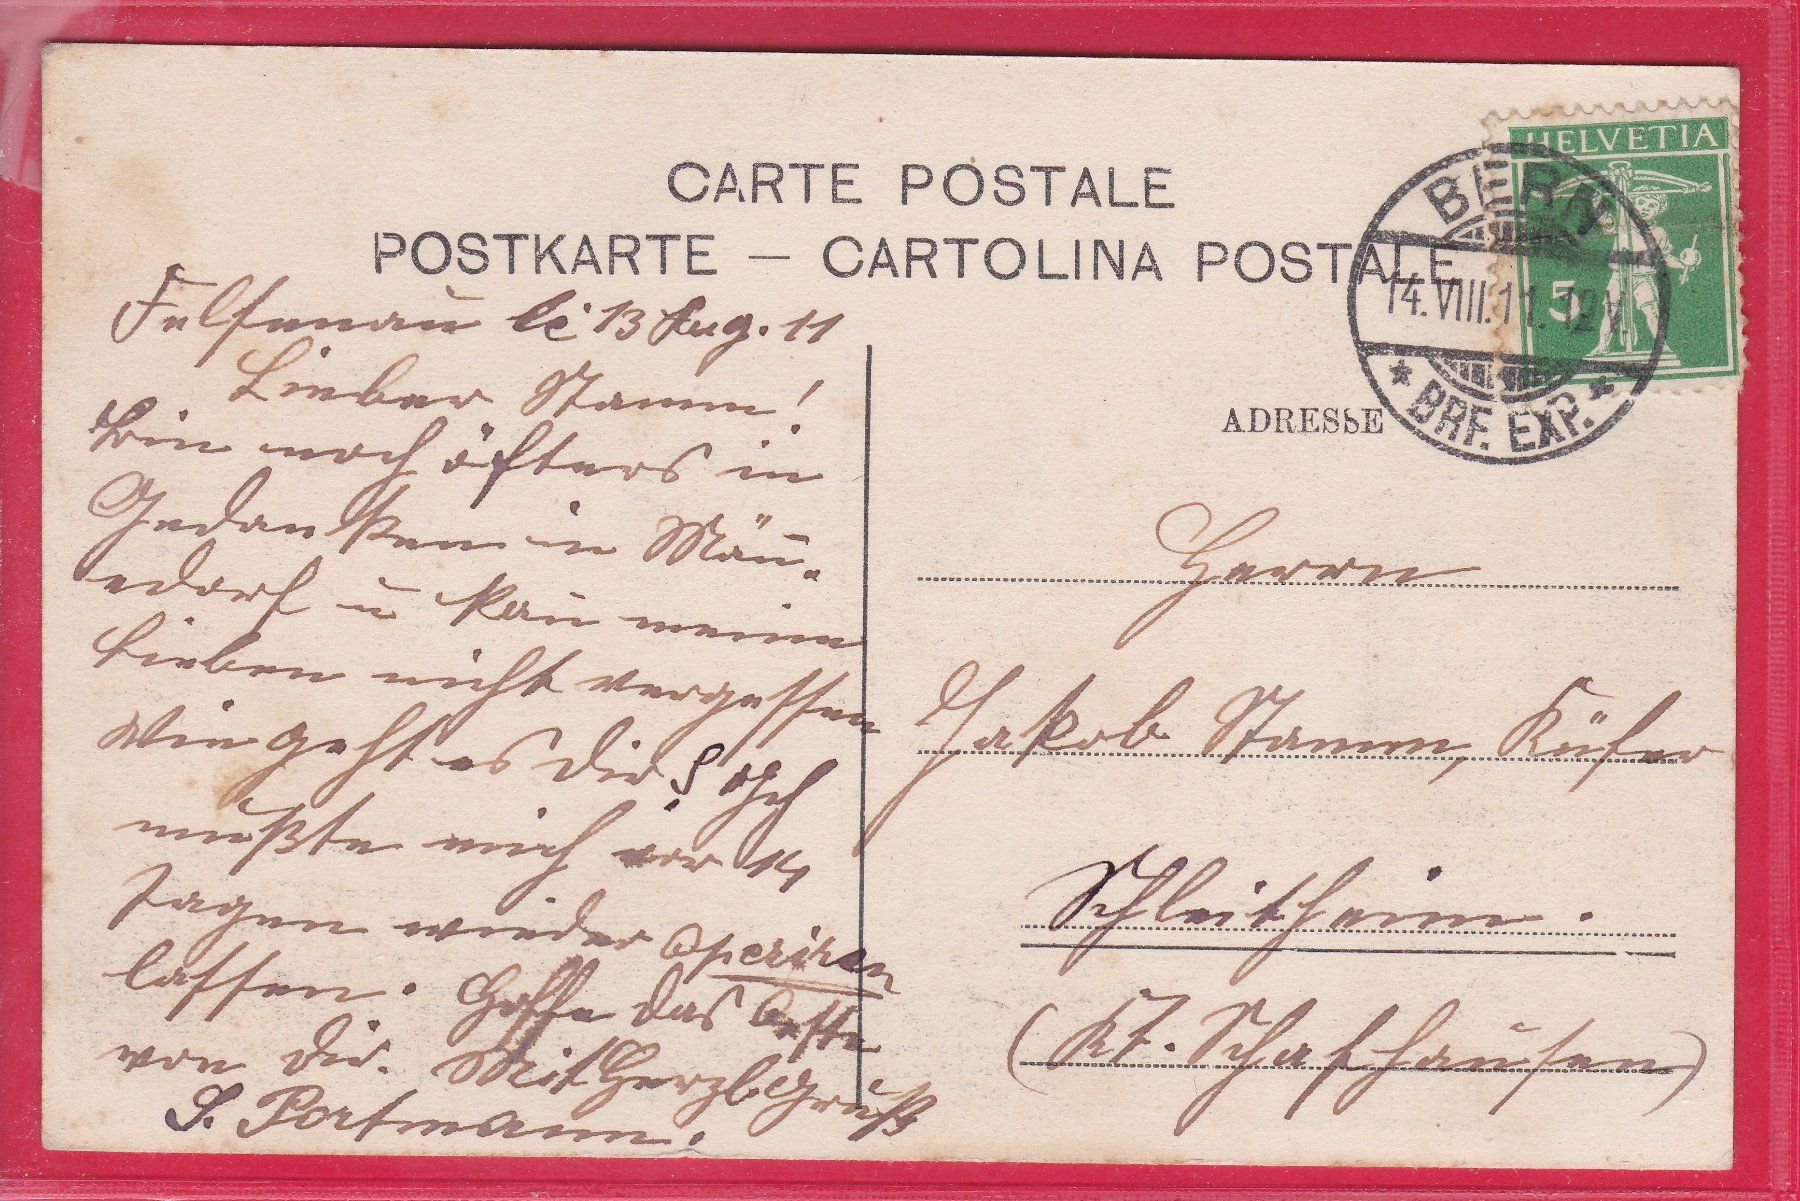 CARTE POSTALE
POSTKARTE — CARTOLINA POSTALE
HELVETIA
5
BERN
14.VIII.11. 12 V.
* BRF. EXP. *
ADRESSE
Felsenau 13 Aug. 11
Lieber Stamm!
Bin noch öfters in
Gedanken in Männ-
edorf u kañ meine
Lieben nicht vergessen
Wie geht es dir? Ich
mußte mich vor 14
Tagen wieder Operiren
lassen. Hoffe das Beste
von dir. Mit Herzl. Gruß
S. Portmann.
Herrn
Jakob Stamm, Küfer
Schleitheim.
(Kt. Schafhausen)